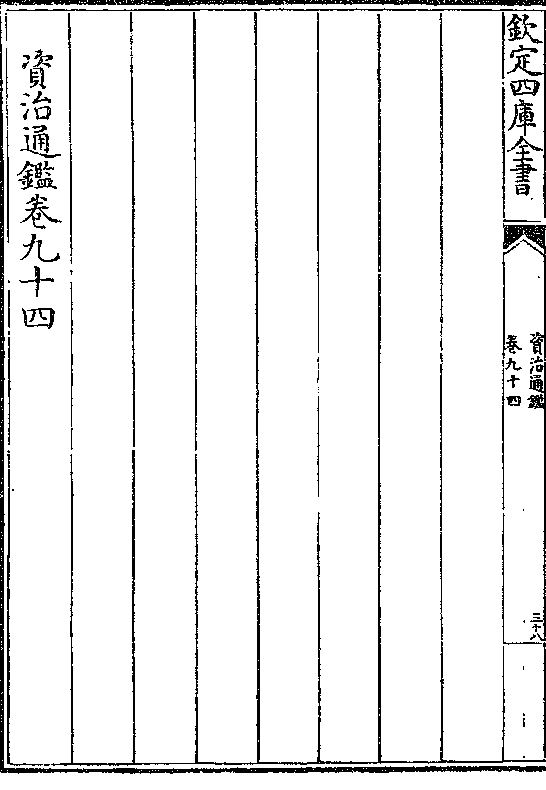 欽定四庫全書
資治通鑑
卷九十四
三十八
資治通鑑卷九十四